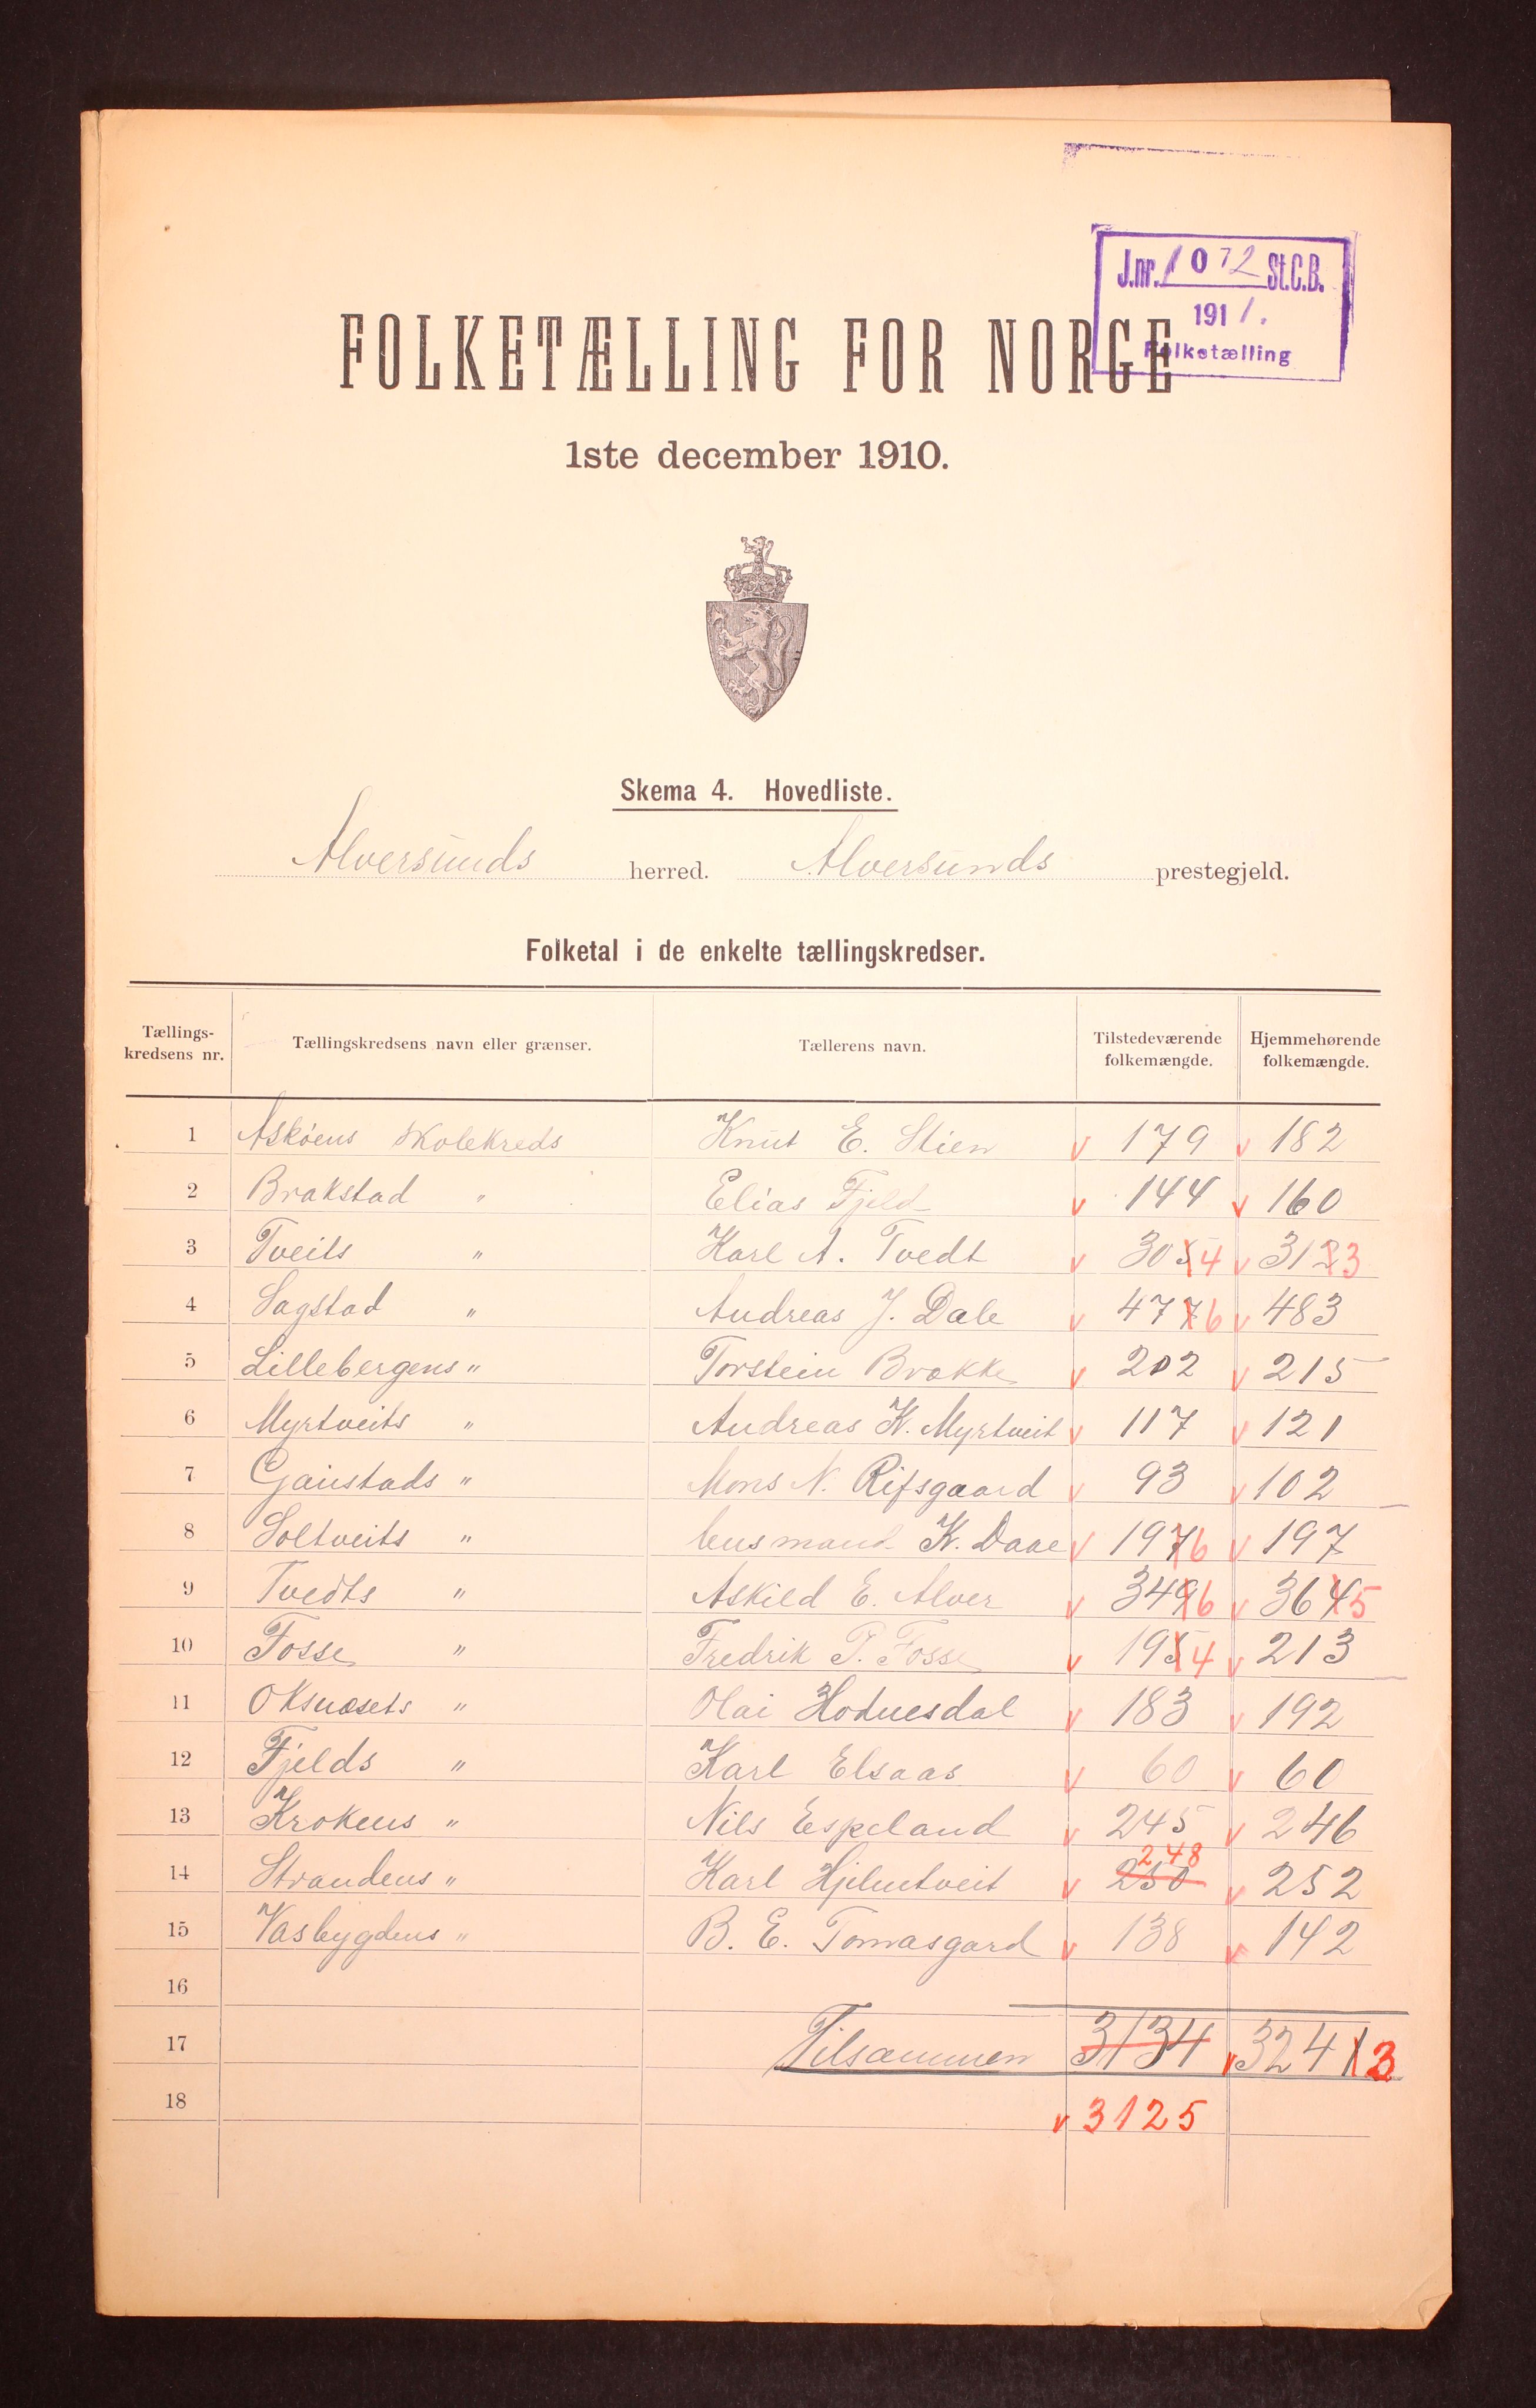 J.nr. 1072 St.C.B.
1911.
Folketælling
FOLKETÆLLING FOR NORGE
1ste december 1910.
Skema 4. Hovedliste.
Alversunds herred. Alversunds prestegjeld.
Folketal i de enkelte tællingskredser.
Tællings-kredsens nr. Tællingskredsens navn eller grænser. Tællerens navn. Tilstedeværende folkemængde. Hjemmehørende folkemængde.
1 Askøens Skolekreds Knut E. Stien v 179 v 182
2 Brakstad " Elias Fjeld v 144 v 160
3 Tveits " Karl A. Tvedt v 305 4 v 312 3
4 Sagstad " Andreas J. Dale v 477 6 v 483
5 Lillebergens " Torstein Brakke v 202 v 215
6 Myrtveits " Andreas K. Myrtveit v 117 v 121
7 Gaustads " Mons N. Rifsgaard v 93 v 102
8 Soltveits " Lensmand K. Daae v 197 6 v 197
9 Tvedts " Askild E. Alver v 349 6 v 364 5
10 Fosse " Fredrik P. Fosse v 195 4 v 213
11 Oksnæsets " Olai Hodnesdal v 183 v 192
12 Fjelds " Karl Elsaas v 60 v 60
13 Krokens " Nils Espeland v 245 v 246
14 Strandens " Karl Hjelmtveit v 250 248 v 252
15 Vasbygdens " B. E. Tomasgard v 138 v 142
16
17 Tilsammen 3134 v 3241 3
18 v 3125